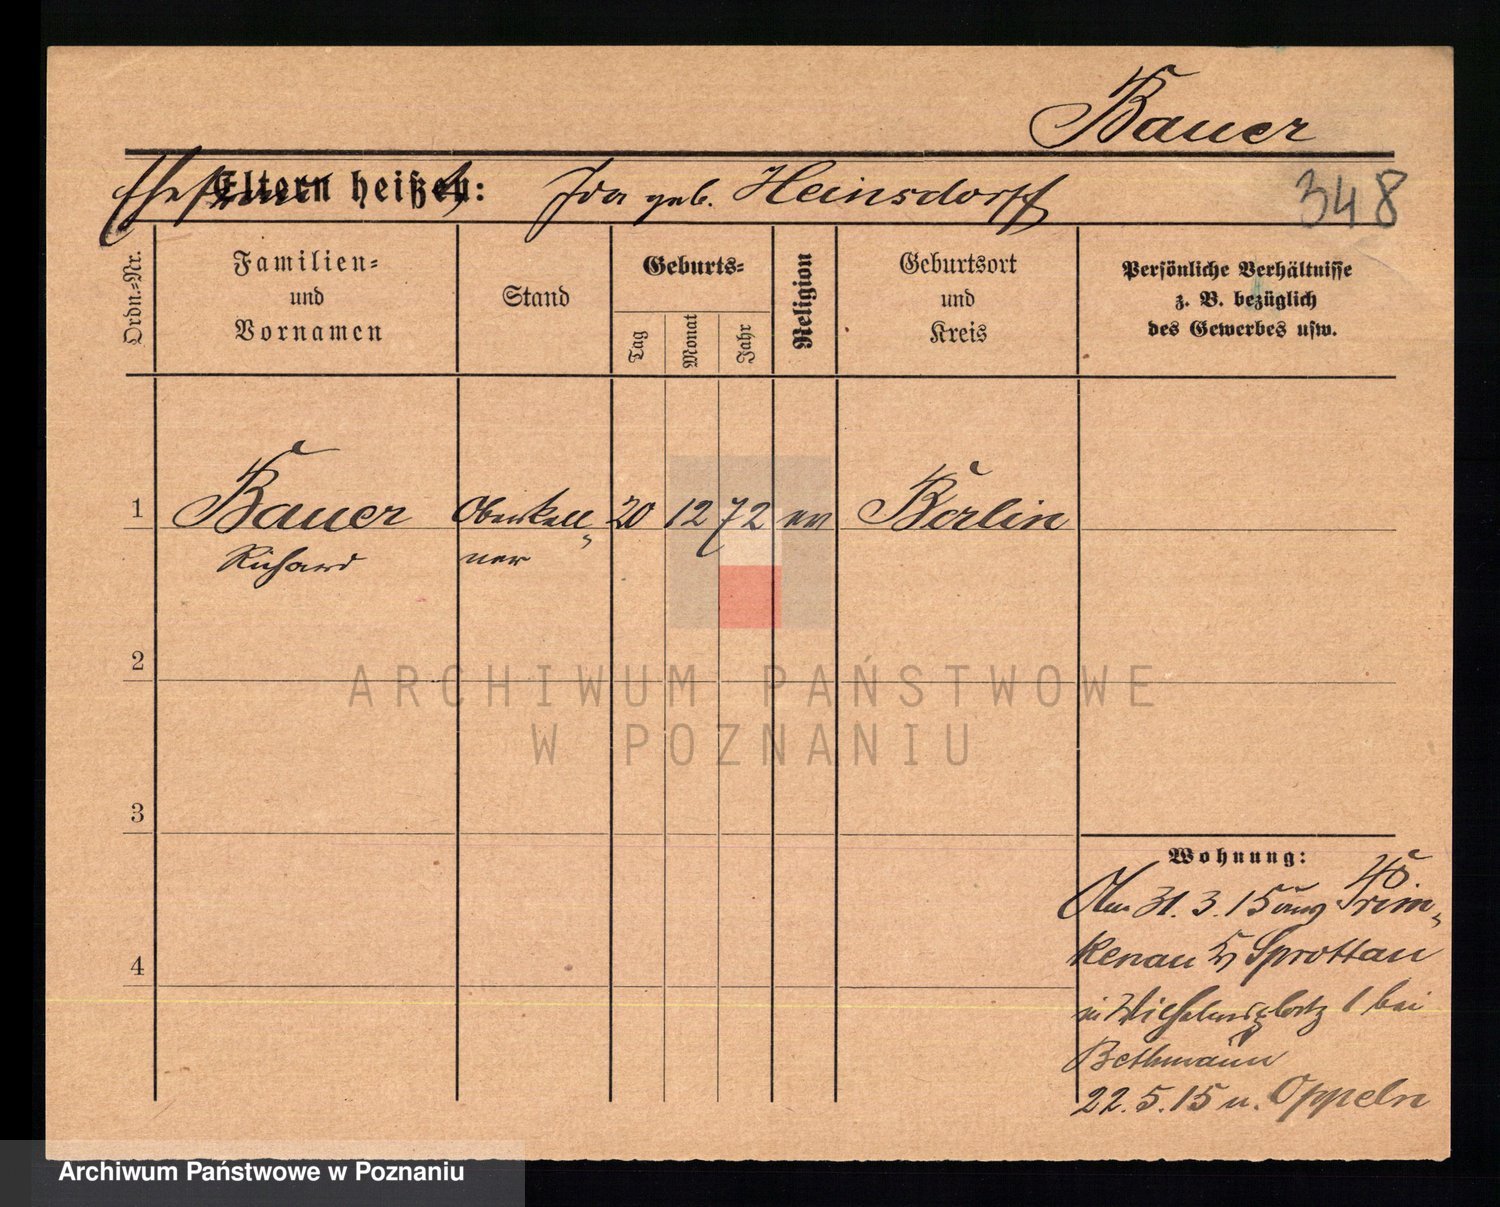 Bauer
Ehefrau
Eltern heißen: Ida geb. Heinsdorff
348
Ordn.-Nr.
Familien-
und
Vornamen
Stand
Geburts-
Tag
Monat
Jahr
Religion
Geburtsort
und
Kreis
Persönliche Verhältnisse
z. B. bezüglich
des Gewerbes usw.
1 Bauer Oberkell- 20 12 72 ev Berlin
Richard ner
2
ARCHIWUM PAŃSTWOWE
W POZNANIU
3
Wohnung:
Am 31. 3. 15 aus Prim-
kenau Kr Sprottau
in Wilhelmsplatz 1 bei
Bethmann
4
22. 5. 15 n. Oppeln
Archiwum Państwowe w Poznaniu